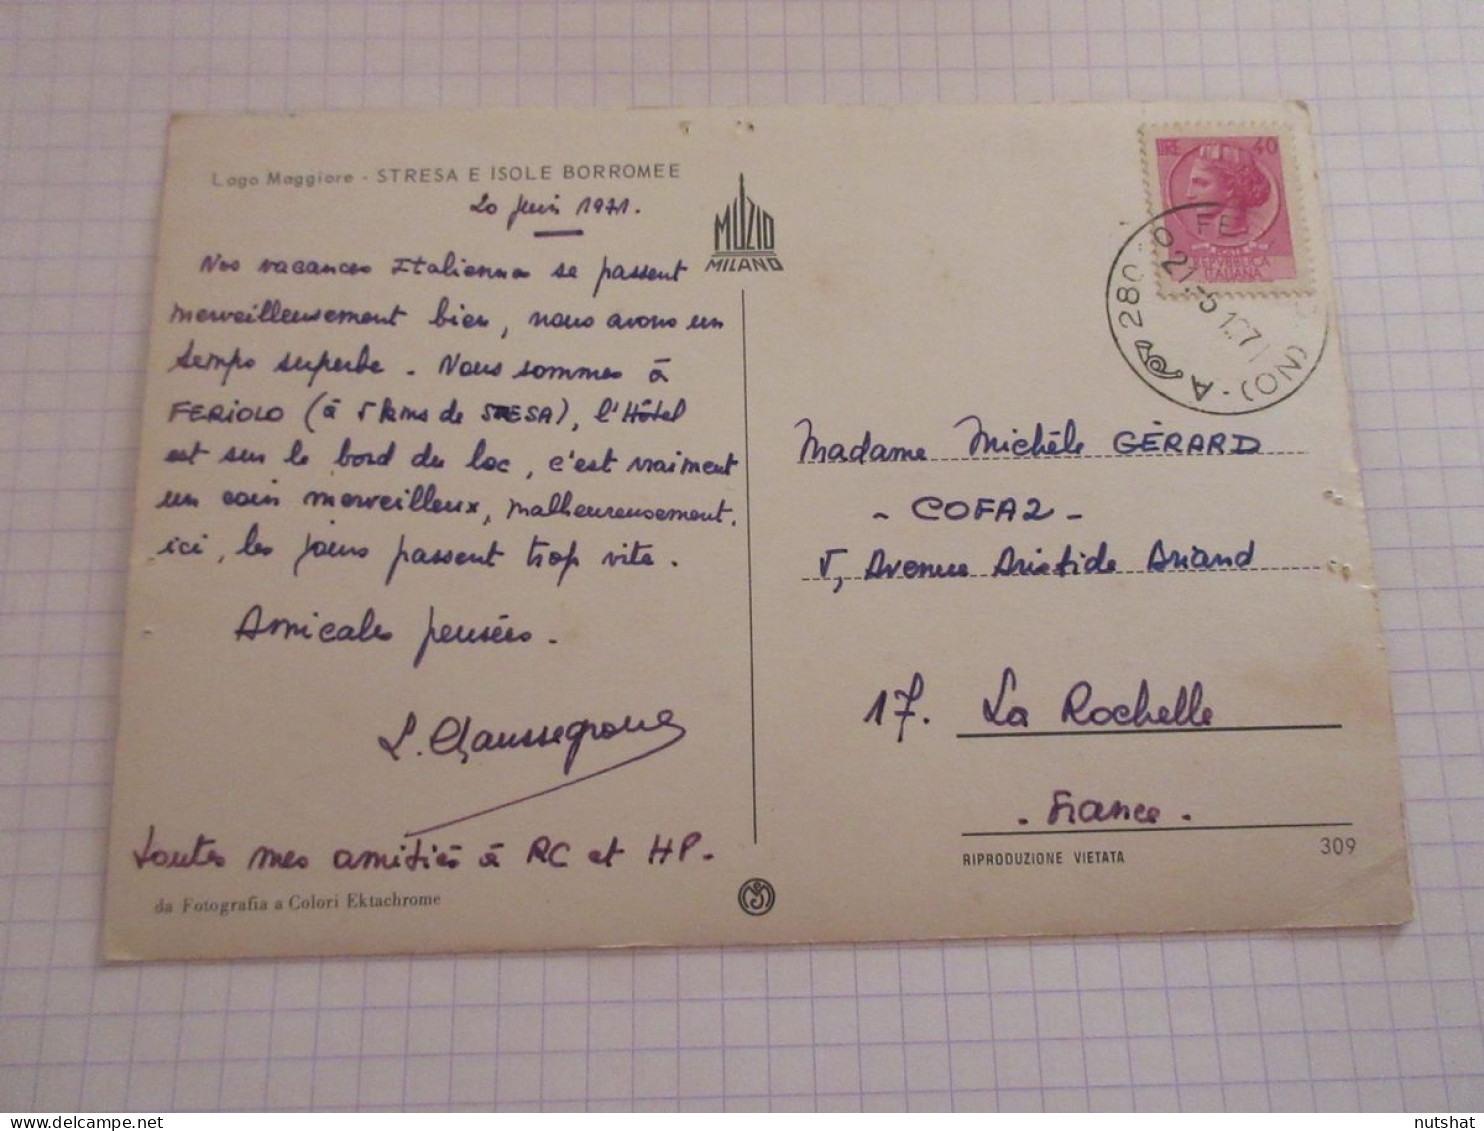 Lago Maggiore - STRESA E ISOLE BORROMEE
20 juin 1971.
Nos vacances Italiennes se passent
merveilleusement bien, nous avons un
temps superbe. Nous sommes à
FERIOLO (à 5 kms de STRESA), l'Hôtel
est sur le bord du lac, c'est vraiment
un coin merveilleux, malheureusement,
ici, les jours passent trop vite.
Amicales pensées.
Toutes mes amitiés à RC et HP.
da Fotografia a Colori Ektachrome
MUZIO
MILANO
LIRE 40
POSTE
REPUBBLICA
ITALIANA
Madame Michèle GÉRARD
- COFA2 -
5, Avenue Aristide Briand
17. La Rochelle
- France -
RIPRODUZIONE VIETATA
309
nutshat